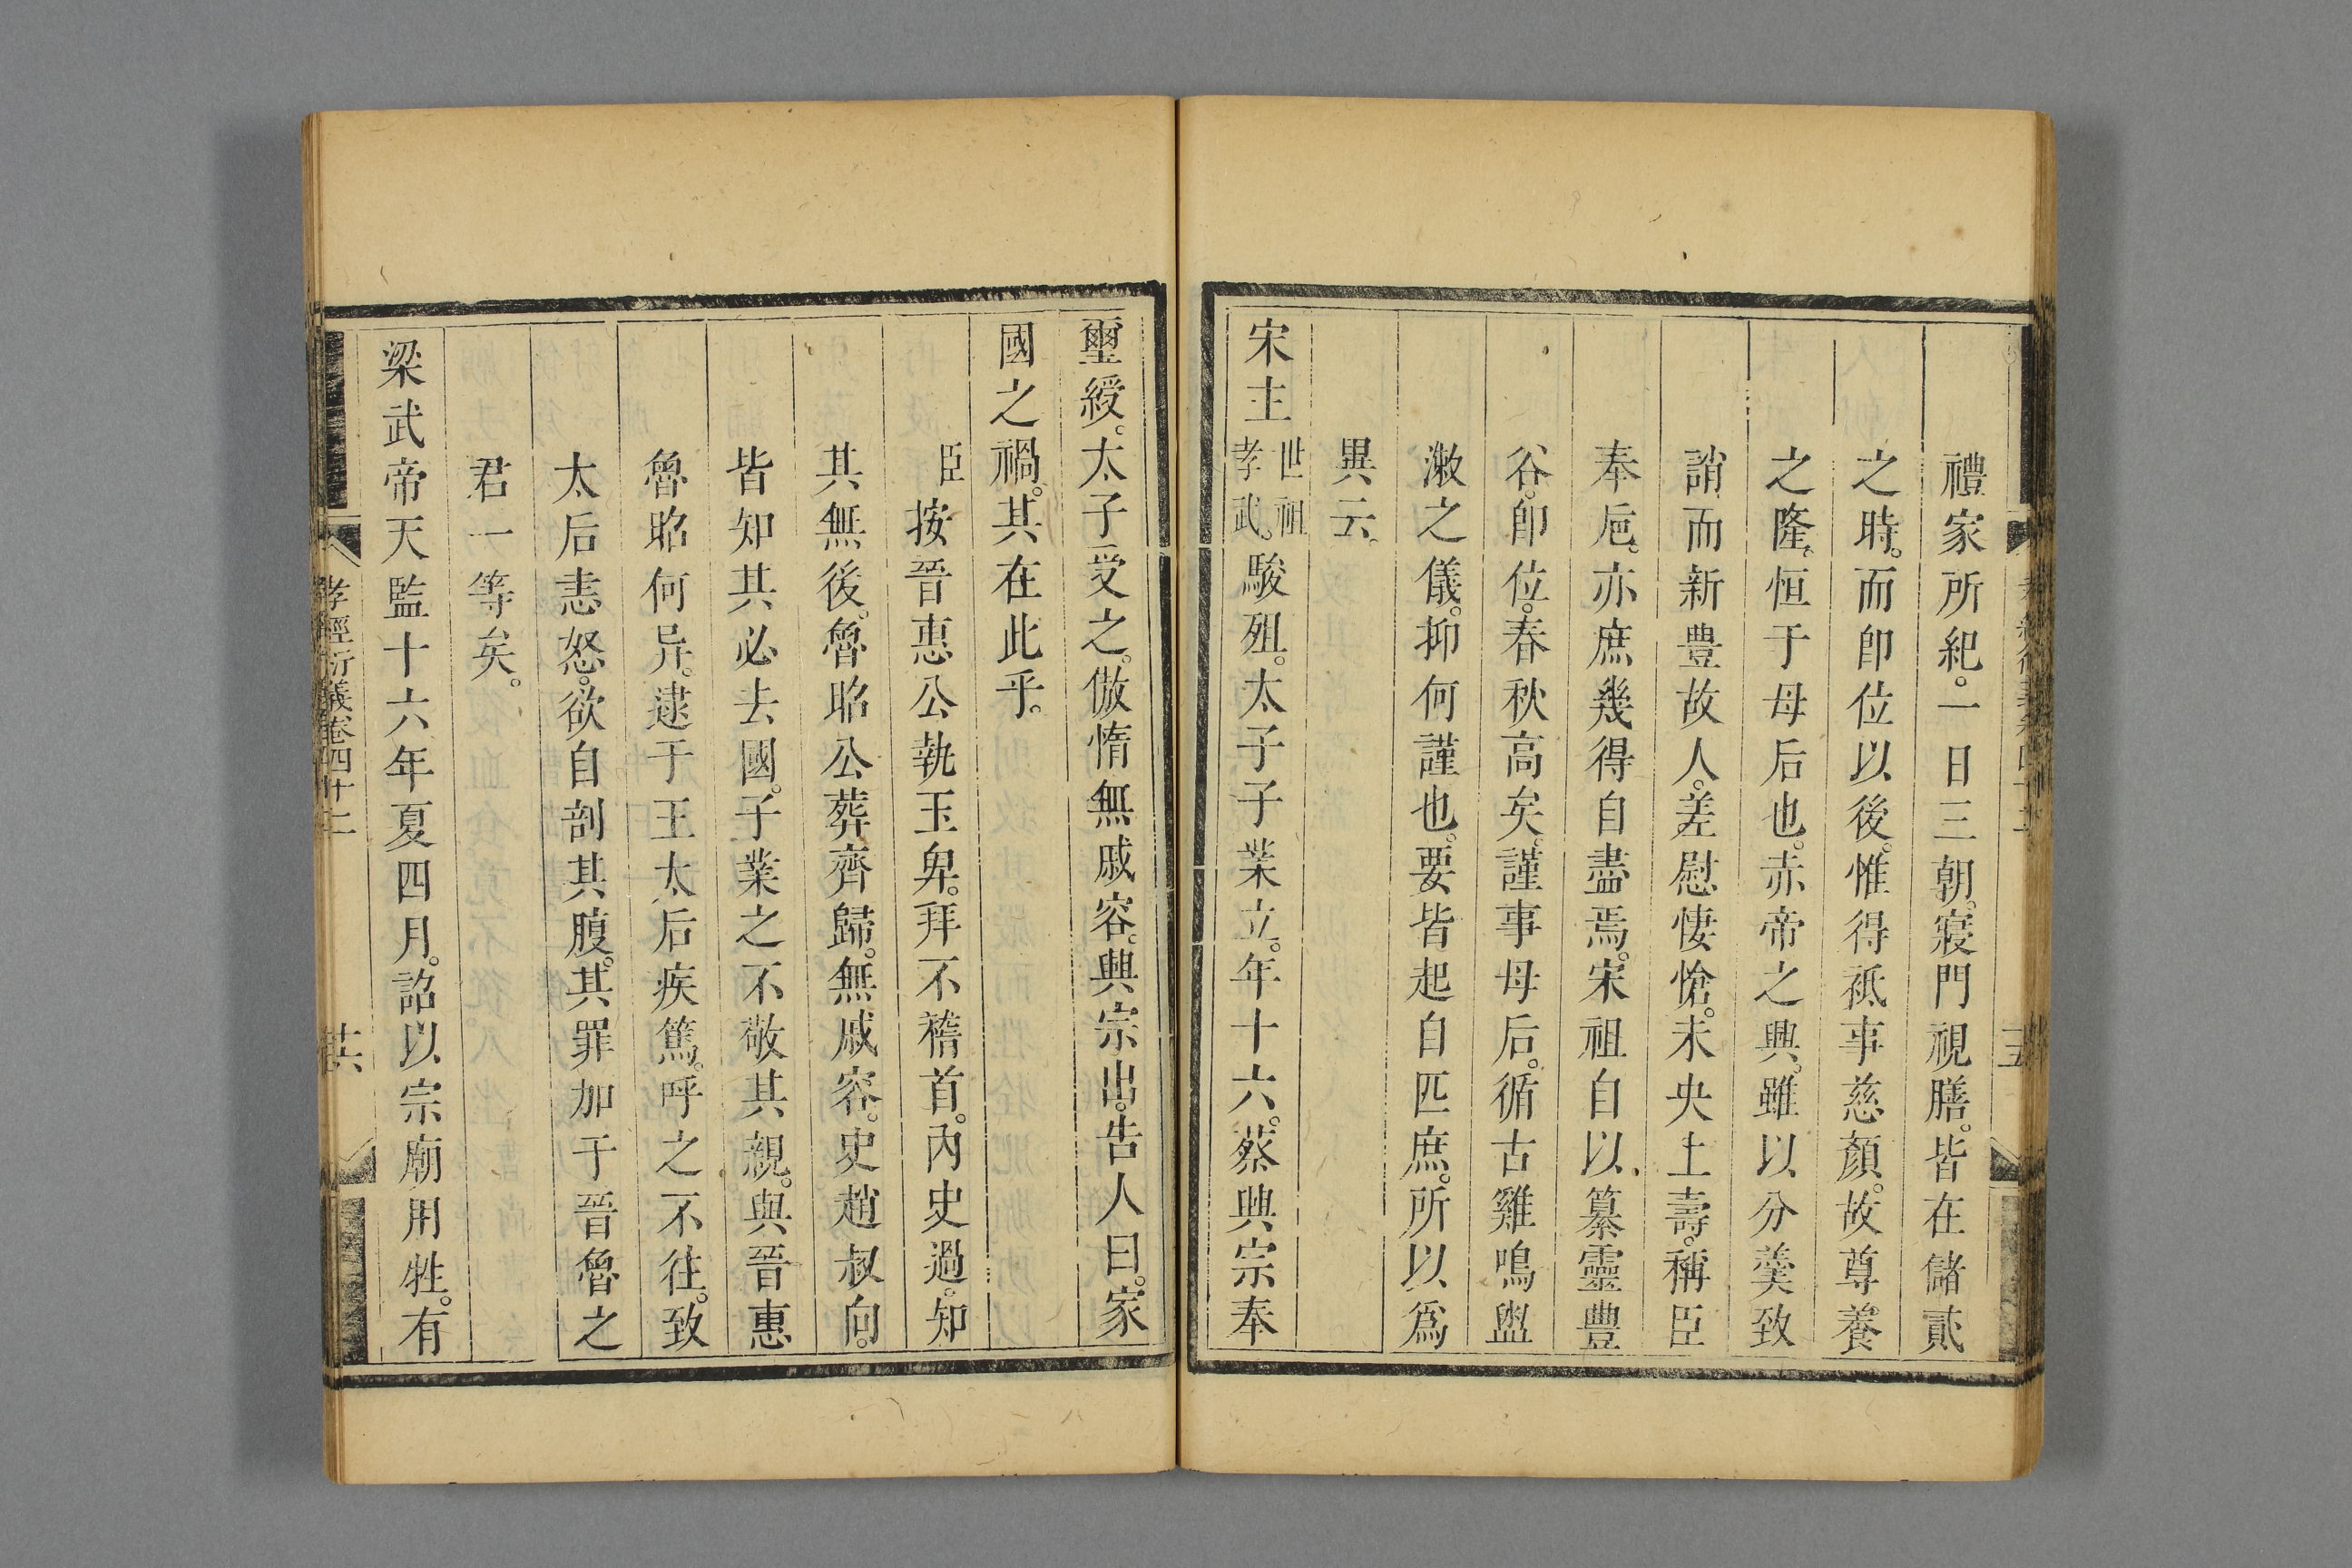 禮家所紀。一日三朝。寢門視膳。皆在儲貳
之時。而卽位以後。惟得祗事慈顏。故尊養
之隆。恒于母后也。赤帝之興。雖以分羹致
誚而新豐故人。差慰悽愴。未央上壽。稱臣
奉卮。亦庶幾得自盡焉。宋祖自以纂靈豐
谷。卽位。春秋高矣。謹事母后。循古雞鳴盥
漱之儀。抑何謹也。要皆起自匹庶。所以爲
異云。
宋主世祖孝武。駿殂。太子子業立。年十六。蔡興宗奉
璽綬。太子受之。傲惰無戚容。興宗出。告人曰。家
國之禍。其在此乎。
臣按晉惠公執玉卑。拜不稽首。內史過。知
其無後。魯昭公葬齊歸。無慼容。史趙叔向。
皆知其必去國。子業之不敬其親。與晉惠
魯昭何异。逮于王太后疾篤。呼之不往。致
太后恚怒。欲自剖其腹。其罪加于晉魯之
君一等矣。
梁武帝天監十六年夏四月。詔以宗廟用牲。有
孝經衍義卷四十二
廿六